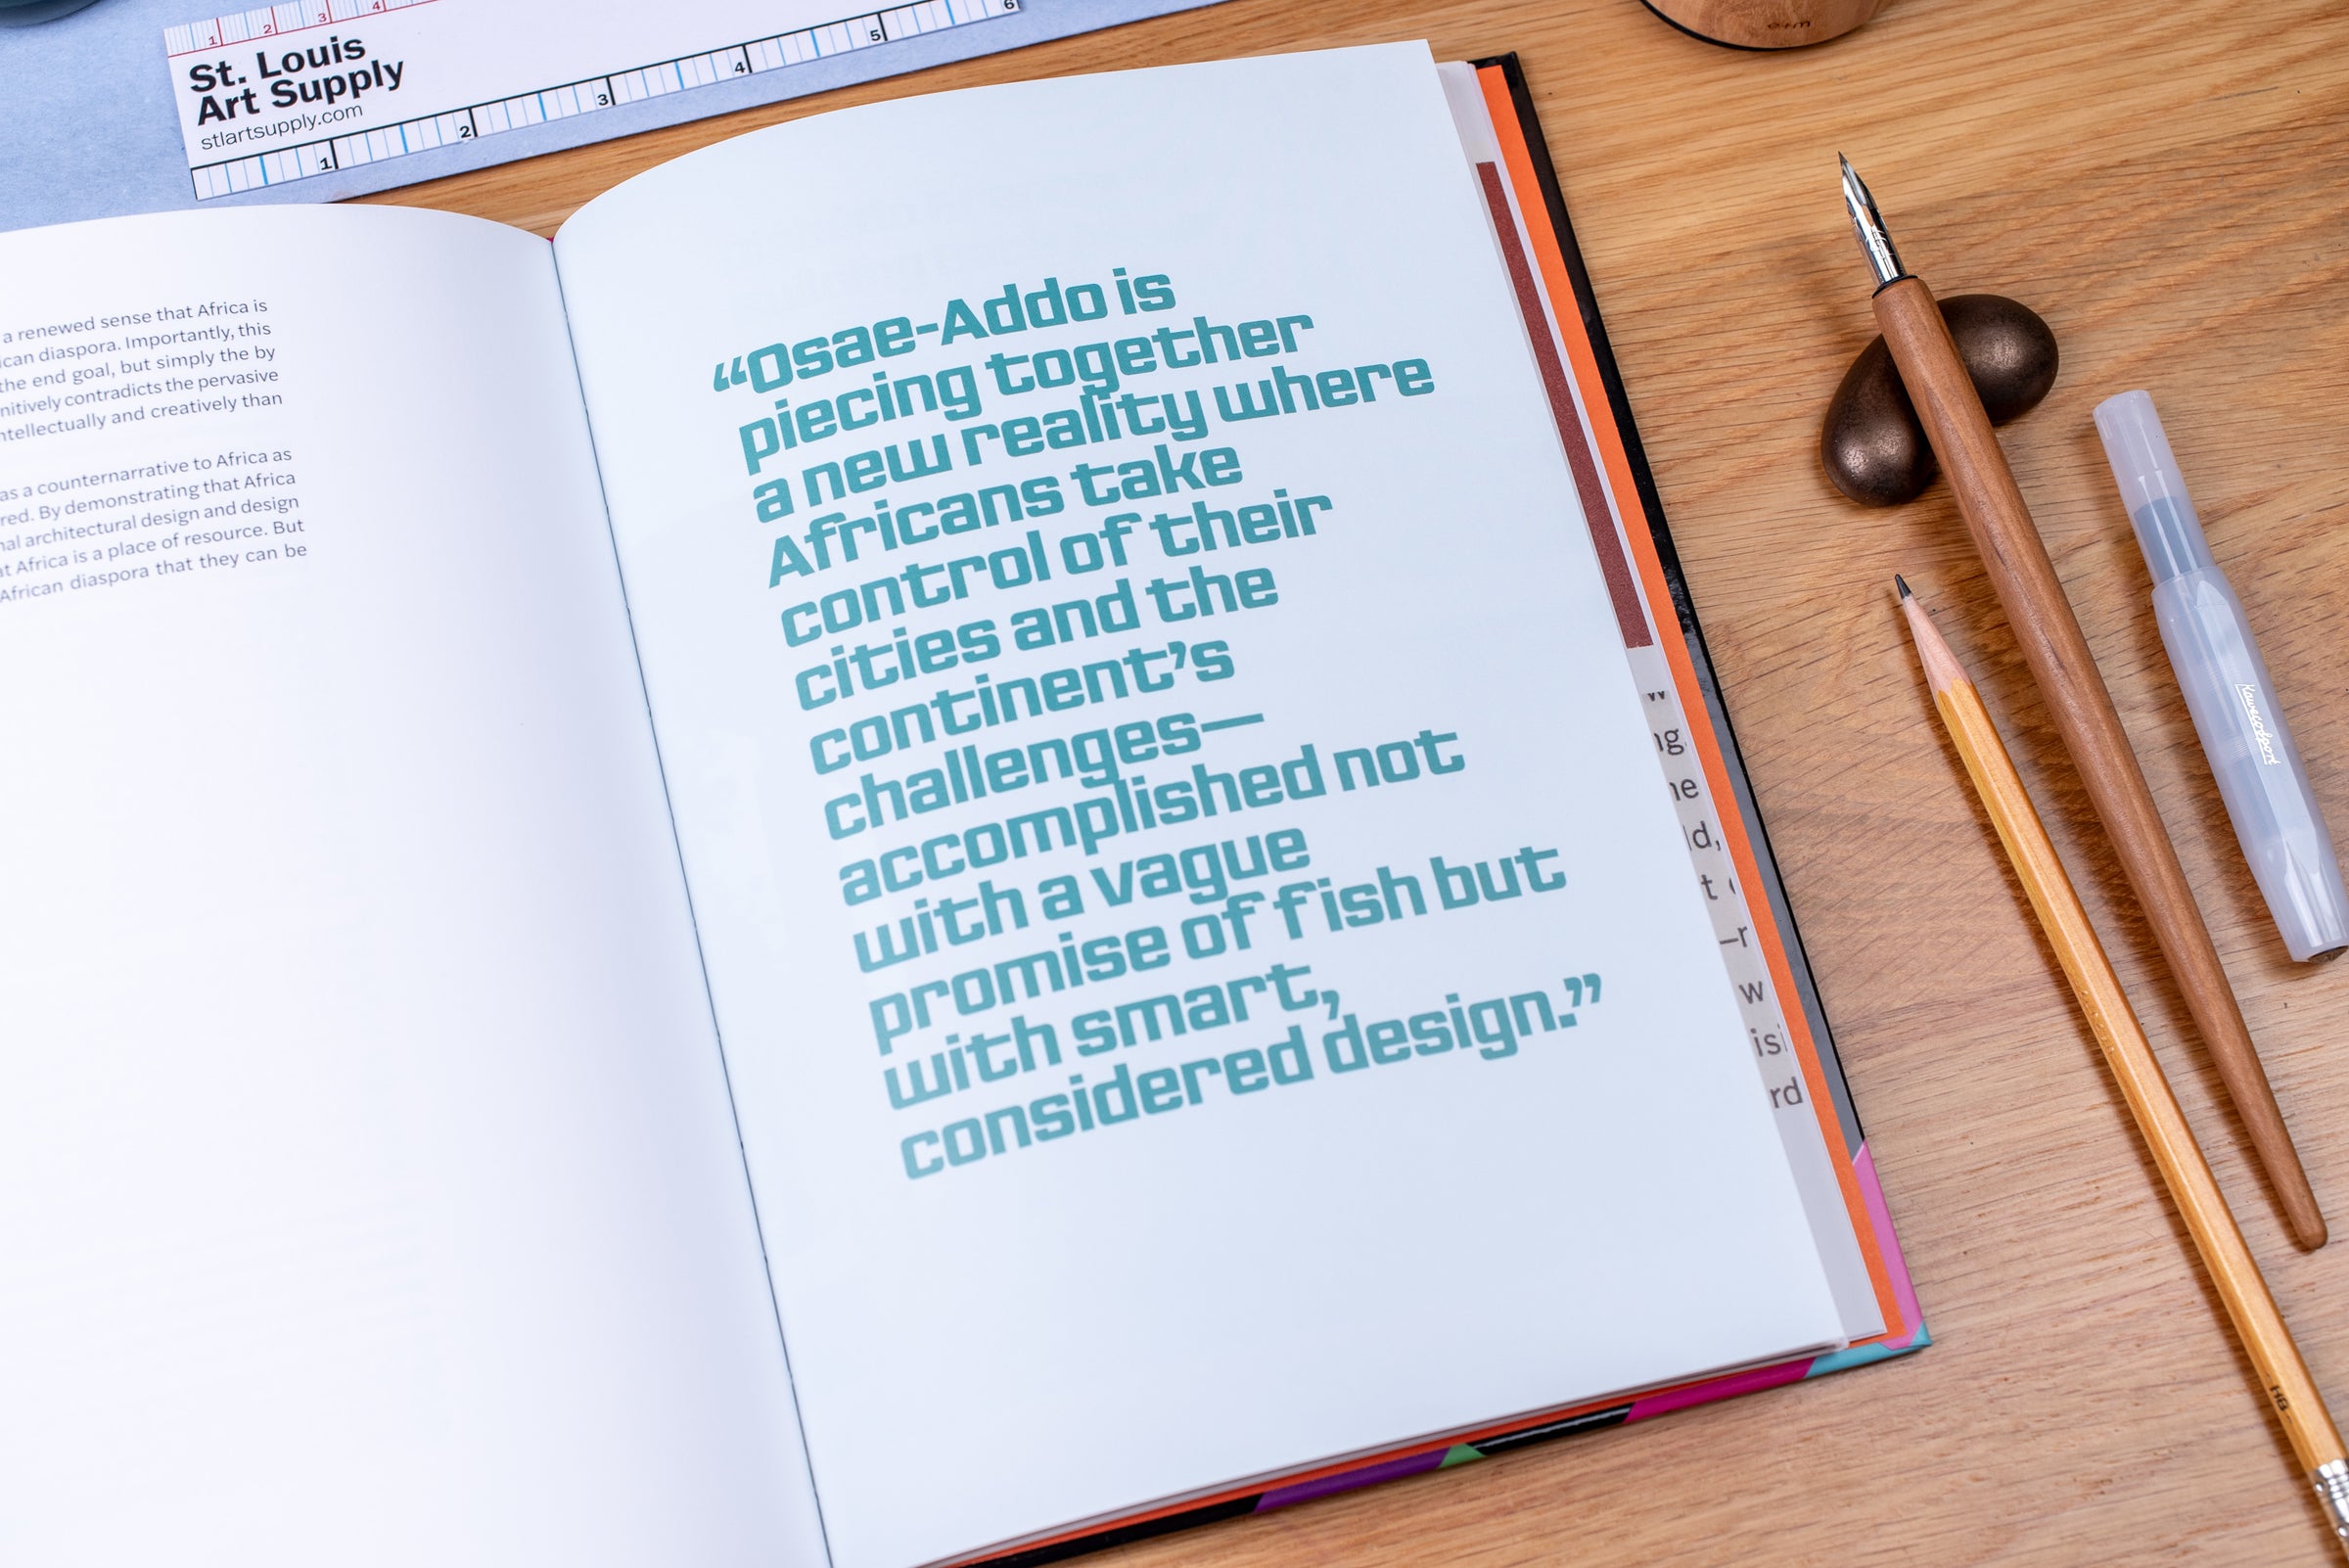 1 2 3 4
St. Louis
Art Supply
stlartsupply.com
1 2 3 4 5 6
a renewed sense that Africa is
ican diaspora. Importantly, this
the end goal, but simply the by
nitively contradicts the pervasive
ntellectually and creatively than
as a counternarrative to Africa as
red. By demonstrating that Africa
nal architectural design and design
at Africa is a place of resource. But
African diaspora that they can be
“Osae-Addo is
piecing together
a new reality where
Africans take
control of their
cities and the
continent’s
challenges—
accomplished not
with a vague
promise of fish but
with smart,
considered design.”
w
ng
ne
ld,
t
–r
w
isi
rd
Kaweco Sport
HB